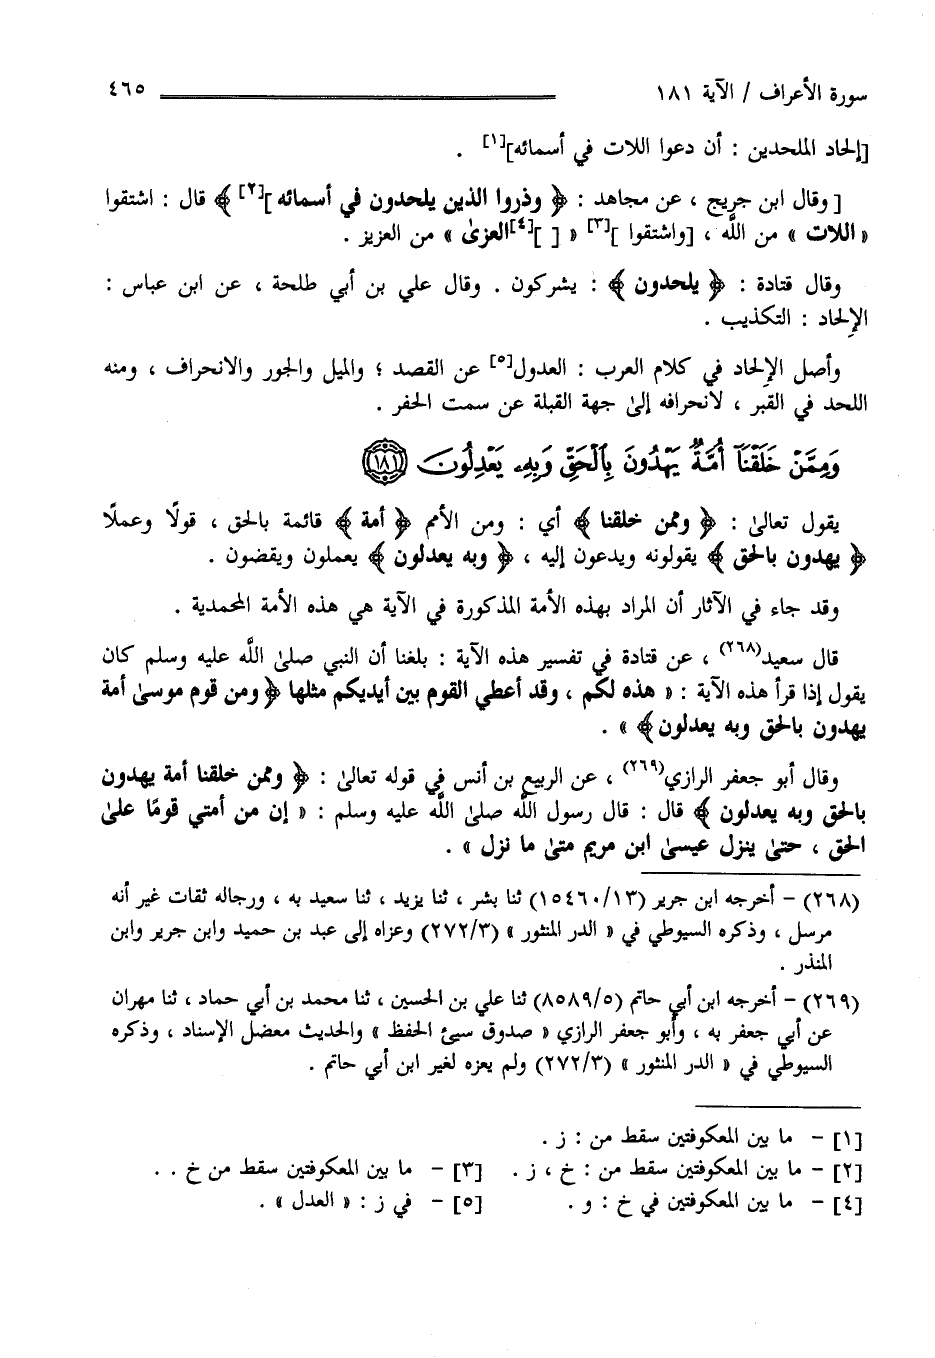 سورة الأعراف / الآية ١٨١ ٤٦٥
[إلحاد الملحدين : أن دعوا اللات في أسمائه][١] .
[ وقال ابن جريج ، عن مجاهد : ﴿ وذروا الذين يلحدون في أسمائه ][٢] ﴾ قال : اشتقوا
« اللات » من اللَّه ، [واشتقوا ][٣] « [ ][٤]العزىٰ » من العزيز .
وقال قتادة : ﴿ يلحدون ﴾ : يشركون . وقال علي بن أبي طلحة ، عن ابن عباس :
الإلحاد : التكذيب .
وأصل الإلحاد في كلام العرب : العدول[٥] عن القصد ؛ والميل والجور والانحراف ، ومنه
اللحد في القبر ، لانحرافه إلىٰ جهة القبلة عن سمت الحفر .
وَمِمَّنْ خَلَقْنَآ أُمَّةٌ يَهْدُونَ بِالْحَقِّ وَبِهِۦ يَعْدِلُونَ ١٨١
يقول تعالىٰ : ﴿ وممن خلقنا ﴾ أي : ومن الأمم ﴿ أمة ﴾ قائمة بالحق ، قولًا وعملًا
﴿ يهدون بالحق ﴾ يقولونه ويدعون إليه ، ﴿ وبه يعدلون ﴾ يعملون ويقضون .
وقد جاء في الآثار أن المراد بهذه الأمة المذكورة في الآية هي هذه الأمة المحمدية .
قال سعيد(٢٦٨) ، عن قتادة في تفسير هذه الآية : بلغنا أن النبي صلىٰ اللَّه عليه وسلم كان
يقول إذا قرأ هذه الآية : « هذه لكم ، وقد أعطي القوم بين أيديكم مثلها ﴿ ومن قوم موسىٰ أمة
يهدون بالحق وبه يعدلون ﴾ » .
وقال أبو جعفر الرازي(٢٦٩) ، عن الربيع بن أنس في قوله تعالىٰ : ﴿ وممن خلقنا أمة يهدون
بالحق وبه يعدلون ﴾ قال : قال رسول اللَّه صلىٰ اللَّه عليه وسلم : « إن من أمتي قومًا علىٰ
الحق ، حتىٰ ينزل عيسىٰ ابن مريم متىٰ ما نزل » .
(٢٦٨) - أخرجه ابن جرير (١٥٤٦٠/١٣) ثنا بشر ، ثنا يزيد ، ثنا سعيد به ، ورجاله ثقات غير أنه
مرسل ، وذكره السيوطي في « الدر المنثور » (٢٧٢/٣) وعزاه إلى عبد بن حميد وابن جرير وابن
المنذر .
(٢٦٩) - أخرجه ابن أبي حاتم (٨٥٨٩/٥) ثنا علي بن الحسين ، ثنا محمد بن أبي حماد ، ثنا مهران
عن أبي جعفر به ، وأبو جعفر الرازي « صدوق سيئ الحفظ » والحديث معضل الإسناد ، وذكره
السيوطي في « الدر المنثور » (٢٧٢/٣) ولم يعزه لغير ابن أبي حاتم .
[١] - ما بين المعكوفتين سقط من : ز .
[٢] - ما بين المعكوفتين سقط من : خ ، ز . [٣] - ما بين المعكوفتين سقط من خ . .
[٤] - ما بين المعكوفتين في خ : و . [٥] - في ز : « العدل » .